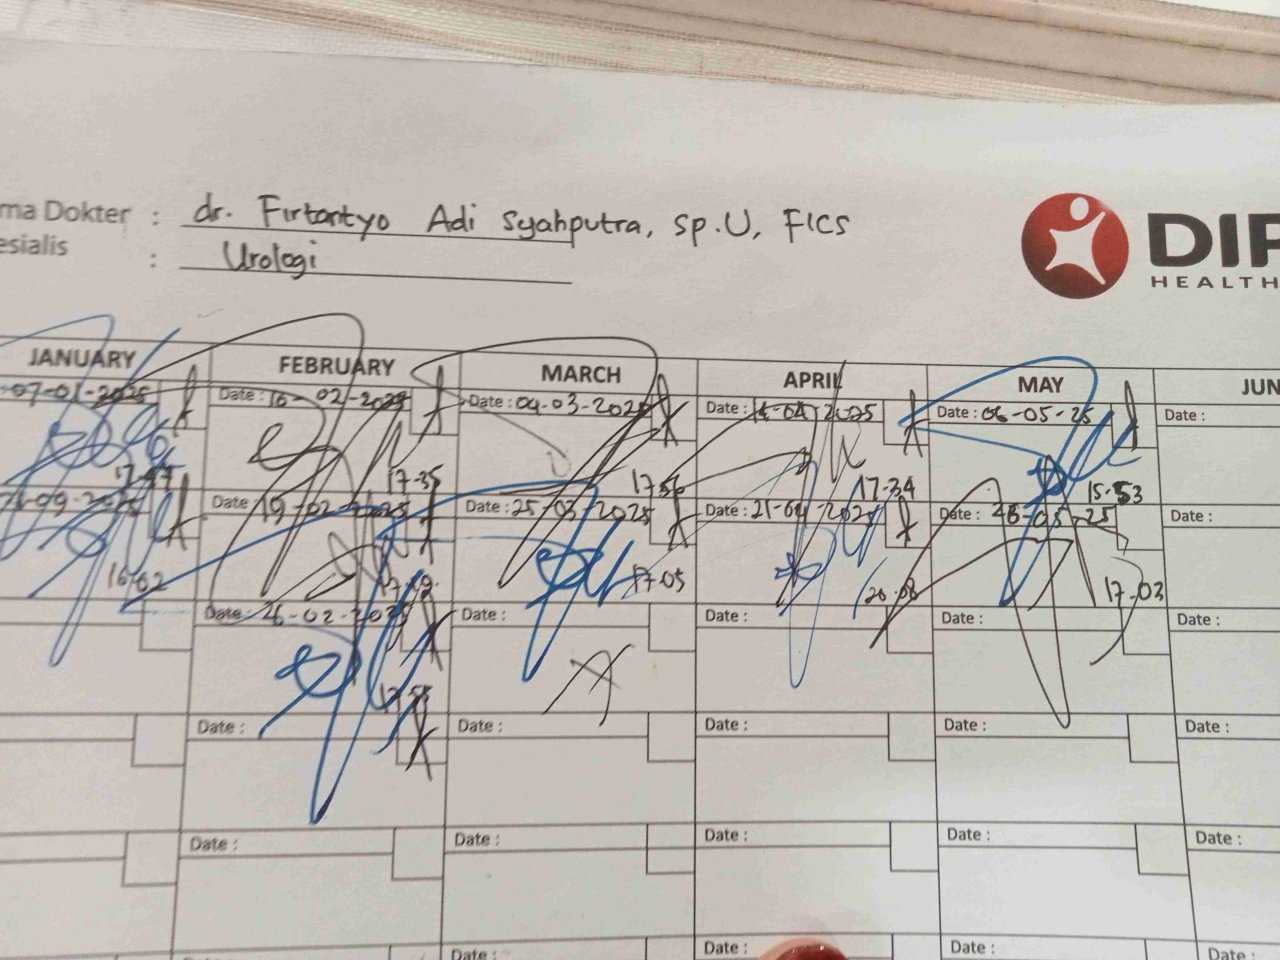 ma Dokter : dr. Firtantyo Adi Syahputra, Sp.U, FICS
esialis : Urologi
DIP
HEALTH
JANUARY FEBRUARY MARCH APRIL MAY JUN
07-01-2025 Date : 10-02-2025 Date : 04-03-2025 Date : 14-04-2025 Date : 06-05-25 Date :
17-35 17 56 17-34 15.53
-09-2025 Date : 19-02-2025 Date : 25-03-2025 Date : 21-04-2025 Date : -05-25 Date :
16-02 17-05 20-08 17-03
Date : 26-02-2025 Date : Date : Date : Date :
Date : Date : Date : Date : Date :
Date : Date : Date : Date : Date :
Date : Date : Date : Date :